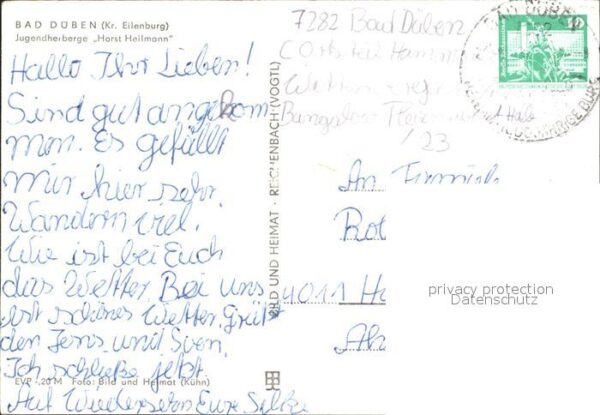 BAD DÜBEN (Kr. Eilenburg)
Jugendherberge „Horst Heilmann"
Hallo Ihr Lieben!
Sind gut angekom
men. Es gefällt
mir hier sehr.
Wandern viel.
Wie ist bei Euch
das Wetter. Bei uns
ist schönes Wetter. Grüßt
den Jens und Sven.
Ich schließe jetzt.
Auf Wiedersehn Eure Silke
EVP -,20 M Foto: Bild und Heimat (Kühn)
BILD UND HEIMAT · REICHENBACH (VOGTL)
7282 Bad Düben
Bungalow
/ 23
BAD DÜBEN
10
An
Rot
4011 Ha
privacy protection
Datenschutz